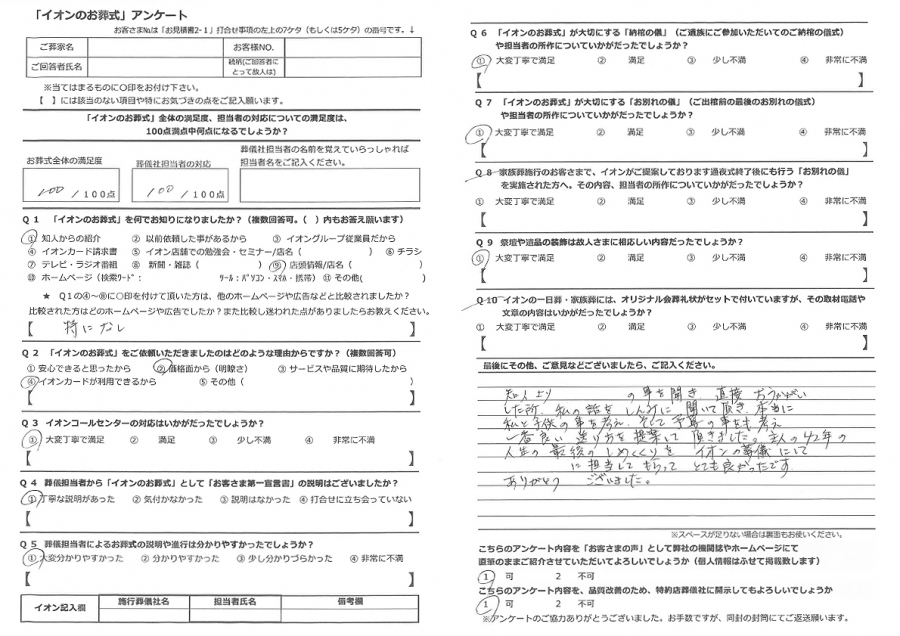 「イオンのお葬式」アンケート
お客さま№は「お見積書2-1」打合せ事項の左上の7ケタ（もしくは5ケタ）の番号です。↓
ご葬家名
お客様NO.
ご回答者氏名
続柄(ご回答者にとって故人は)
※当てはまるものに○印をお付け下さい。
【　】には該当のない項目や特にお気づきの点をご記入願います。
「イオンのお葬式」全体の満足度、担当者の対応についての満足度は、
100点満点中何点になるでしょうか？
お葬式全体の満足度
葬儀社担当者の対応
葬儀社担当者の名前を覚えていらっしゃれば
担当者名をご記入ください。
100 / 100点
100 / 100点
Q 1　「イオンのお葬式」を何でお知りになりましたか？（複数回答可。（　）内もお答え願います）
① 知人からの紹介　② 以前依頼した事があるから　③ イオングループ従業員だから
④ イオンカード請求書　⑤ イオン店舗での勉強会・セミナー/店名（　）　⑥ チラシ
⑦ テレビ・ラジオ番組　⑧ 新聞・雑誌（　）　⑨ 店頭情報/店名（　）
⑩ ホームページ（検索ﾜｰﾄﾞ：　ﾂｰﾙ：ﾊﾟｿｺﾝ・ｽﾏﾎ・携帯）⑪ その他（　）
★　Q1の④～⑧に○印を付けて頂いた方は、他のホームページや広告などと比較されましたか？
比較された方はどのホームページや広告でしたか？また比較し迷われた点がありましたらお教えください。
【　特になし　】
Q 2　「イオンのお葬式」をご依頼いただきましたのはどのような理由からですか？（複数回答可）
① 安心できると思ったから　② 価格面から（明瞭さ）　③ サービスや品質に期待したから
④ イオンカードが利用できるから　⑤ その他（　）
【　】
Q 3　イオンコールセンターの対応はいかがだったでしょうか？
① 大変丁寧で満足　②　満足　③　少し不満　④　非常に不満
【　】
Q 4　葬儀担当者から「イオンのお葬式」として「お客さま第一宣言書」の説明はございましたか？
① 丁寧な説明があった　② 気付かなかった　③ 説明はなかった　④ 打合せに立ち会っていない
【　】
Q 5　葬儀担当者によるお葬式の説明や進行は分かりやすかったでしょうか？
① 大変分かりやすかった　② 分かりやすかった　③ 少し分かりづらかった　④ 非常に不満
【　】
イオン記入欄
施行葬儀社名
担当者氏名
備考欄
Q 6　「イオンのお葬式」が大切にする「納棺の儀」（ご遺族にご参加いただいてのご納棺の儀式）
や担当者の所作についていかがだったでしょうか？
① 大変丁寧で満足　②　満足　③　少し不満　④　非常に不満
【　】
Q 7　「イオンのお葬式」が大切にする「お別れの儀」（ご出棺前の最後のお別れの儀式）
や担当者の所作についていかがだったでしょうか？
① 大変丁寧で満足　②　満足　③　少し不満　④　非常に不満
【　】
Q 8　家族葬施行のお客さまで、イオンがご提案しております通夜式終了後にも行う「お別れの儀」
を実施された方へ。その内容、担当者の所作についていかがだったでしょうか？
① 大変丁寧で満足　②　満足　③　少し不満　④　非常に不満
【　】
Q 9　祭壇や遺品の装飾は故人さまに相応しい内容だったでしょうか？
① 大変丁寧で満足　②　満足　③　少し不満　④　非常に不満
【　】
Q 10　イオンの一日葬・家族葬には、オリジナル会葬礼状がセットで付いていますが、その取材電話や
文章の内容はいかがだったでしょうか？
① 大変丁寧で満足　②　満足　③　少し不満　④　非常に不満
【　】
最後にその他、ご意見などございましたら、ご記入ください。
知人より　の事を聞き、直接 おうかがい
した所、私の話をしんみに聞いて頂き、本当に
私と子供の事を考え、そして予算の事をも考え
一番良い送り方を提案して頂きました。主人の42年の
人生の最後のしめくくりを イオンの葬儀にして
に担当してもらって とても良かったです
ありがとう ございました。
※スペースが足りない場合は裏面もお使いください。
こちらのアンケート内容を「お客さまの声」として弊社の機関誌やホームページにて
直筆のままご紹介させていただいてよろしいでしょうか（個人情報はふせて掲載致します）
1　可　2　不可
こちらのアンケート内容を、品質改善のため、特約店葬儀社に開示してもよろしいでしょうか
1　可　2　不可
※アンケートのご協力ありがとうございました。お手数ですが、同封の封筒にてご返送願います。